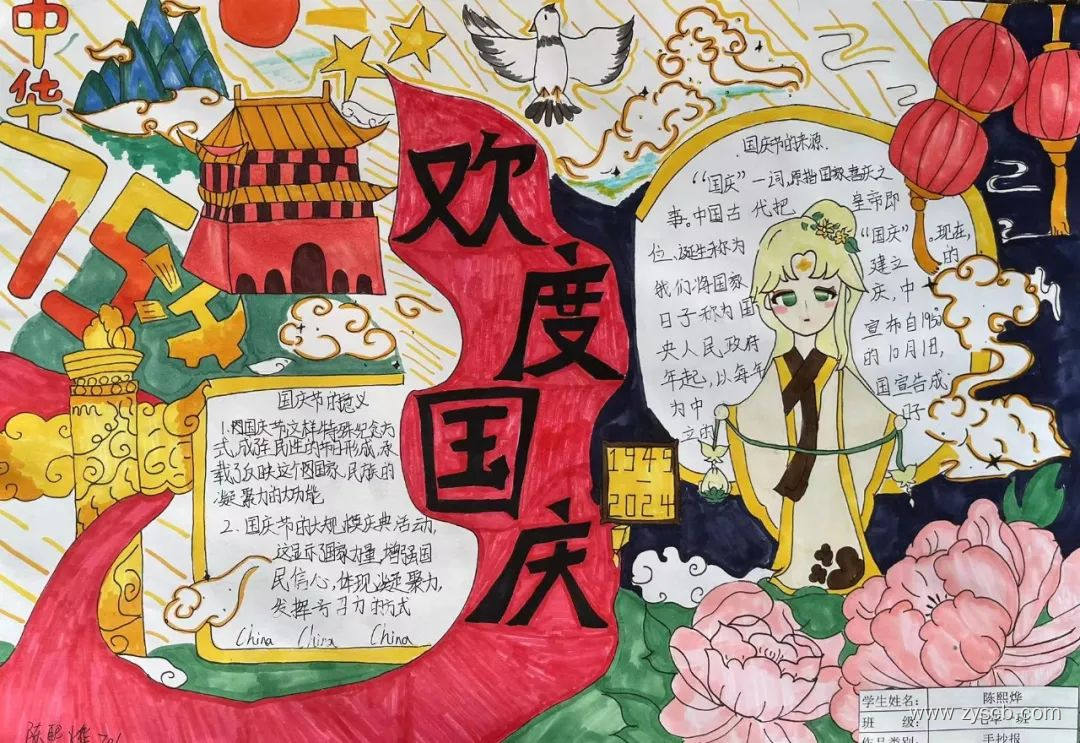 中
华
75
华
欢
度
国
庆
1949
—
2024
国庆节的来源
“国庆”一词,原指国家喜庆之
事。中国古代把皇帝即
位、诞生称为“国庆”。现在,
我们将国家建立的
日子称为国庆,中
央人民政府宣布自1950
年起,以每年的10月1日,
为中国宣告成
立的
国庆节的意义
1.
式,成
载了反映这个国家、民族的
凝聚力的功能
2. 国庆节的大规模庆典活动,
这显示了国家力量,增强国
民信心,体现凝聚力,
发挥号召力的方式
China China China
陈熙烨
学生姓名: 陈熙烨
班 级:
作品类别: 手抄报
www.zyscb.com